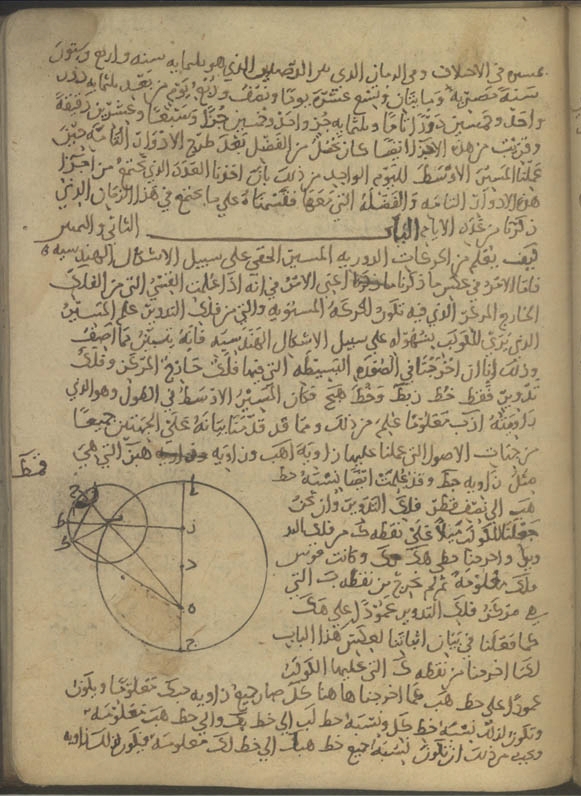 في الاختلاف وفي الزمان الذي بين الرصدين الذي هو ثلثمايه سنه واربع وستون
سنة مصرية ومايتان وتسع عشرة يوما ونصف وربع يوم من بعد ثلثمايه دور
واحد وخمسين دورا تاما وثلثمايه جزء واحد وخمسين جزءا وسبعا وعشرين دقيقة
من هذه الاجزا ايضا كان يحصل من الفضل بعد طرح الادوار التامه حين
عملنا المسير الاوسط لليوم الواحد من ذلك بان اخذنا العدد الذي يجتمع من اجزا
هذه الادوار التامه والفضله التي معها فقسمناه على ما يجتمع في هذا الزمان الذي
ذكرنا من عدة الايام الباب الثاني والمسير
كيف يعلم من الحركات الدوريه المسير الحقي على سبيل الاشكال الهندسيه
فاما الامر في عكس ما ذكرنا اعني الامر في انه اذا علمت القسي التي من الفلك
الخارج المركز الذي فيه تكون الحركة المستويه والتي من فلك التدوير علم المسير
الذي يرى للكوكب بسهوله على سبيل الاشكال الهندسيه فانه يتبين بما اصف
وذلك انا ان اخرجنا في الصوره البسيطه التي فيها فلك خارج المركز وفلك
تدوير فقط خط زبط وخط هبح فكان المسير الاوسط في الطول وهو الذي
زاوية ازب معلوما علم من ذلك ومما قد قدمنا بيانه على الجهتين جميعا
من جهات الاصول التي عملنا عليها زاوية اهب وزاويه هبز التي هي
مثل زاويه حبط وقد علمت ايضا نسبة خط
هب الى نصف قطر فلك التدوير وان نحن
جعلنا الكوكب مثلا على نقطه ك من فلك التد
وير واخرجنا خطي هك بك وكانت قوس
طك معلومة ثم لم نخرج من نقطه ب التي
هي مركز فلك التدوير عمودا على هك
كما فعلنا في بيان اثباتنا لعكس هذا الباب
لكنا اخرجنا من نقطه ك التي عليها الكوكب
عمودا على خط هب كما اخرجنا هاهنا كل صار جميع زاويه حبك معلوما ويكون
وتكون لذلك نسبة خط كل ونسبة خط لب الى خط بك والى خط هب معلومه
ويجب من ذلك ان تكون نسبة جميع خط هبل الى خط لك معلومه وتكون لذلك زاويه